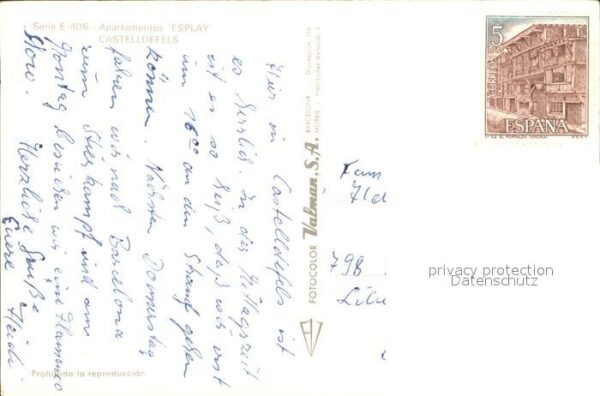 Serie E-406 - Apartamentos "ESPLAY"
CASTELLDEFELS
Hier in Castelldefels ist
es herrlich. In der Mittagszeit
ist es so heiß, daß wir erst
um 16 00 an den Strand gehen
können. Nächsten Donnerstag
fahren wir nach Barcelona
zum Stierkampf und am
Montag besuchen wir ein Flamenco
Show.
Herzliche Grüße
Euere Heidi
Prohibida la reproducción
FOTOCOLOR Valman, S.A. BARCELONA
MOTRIL
5
CORREOS
ESPAÑA
Fam
798
privacy protection
Datenschutz